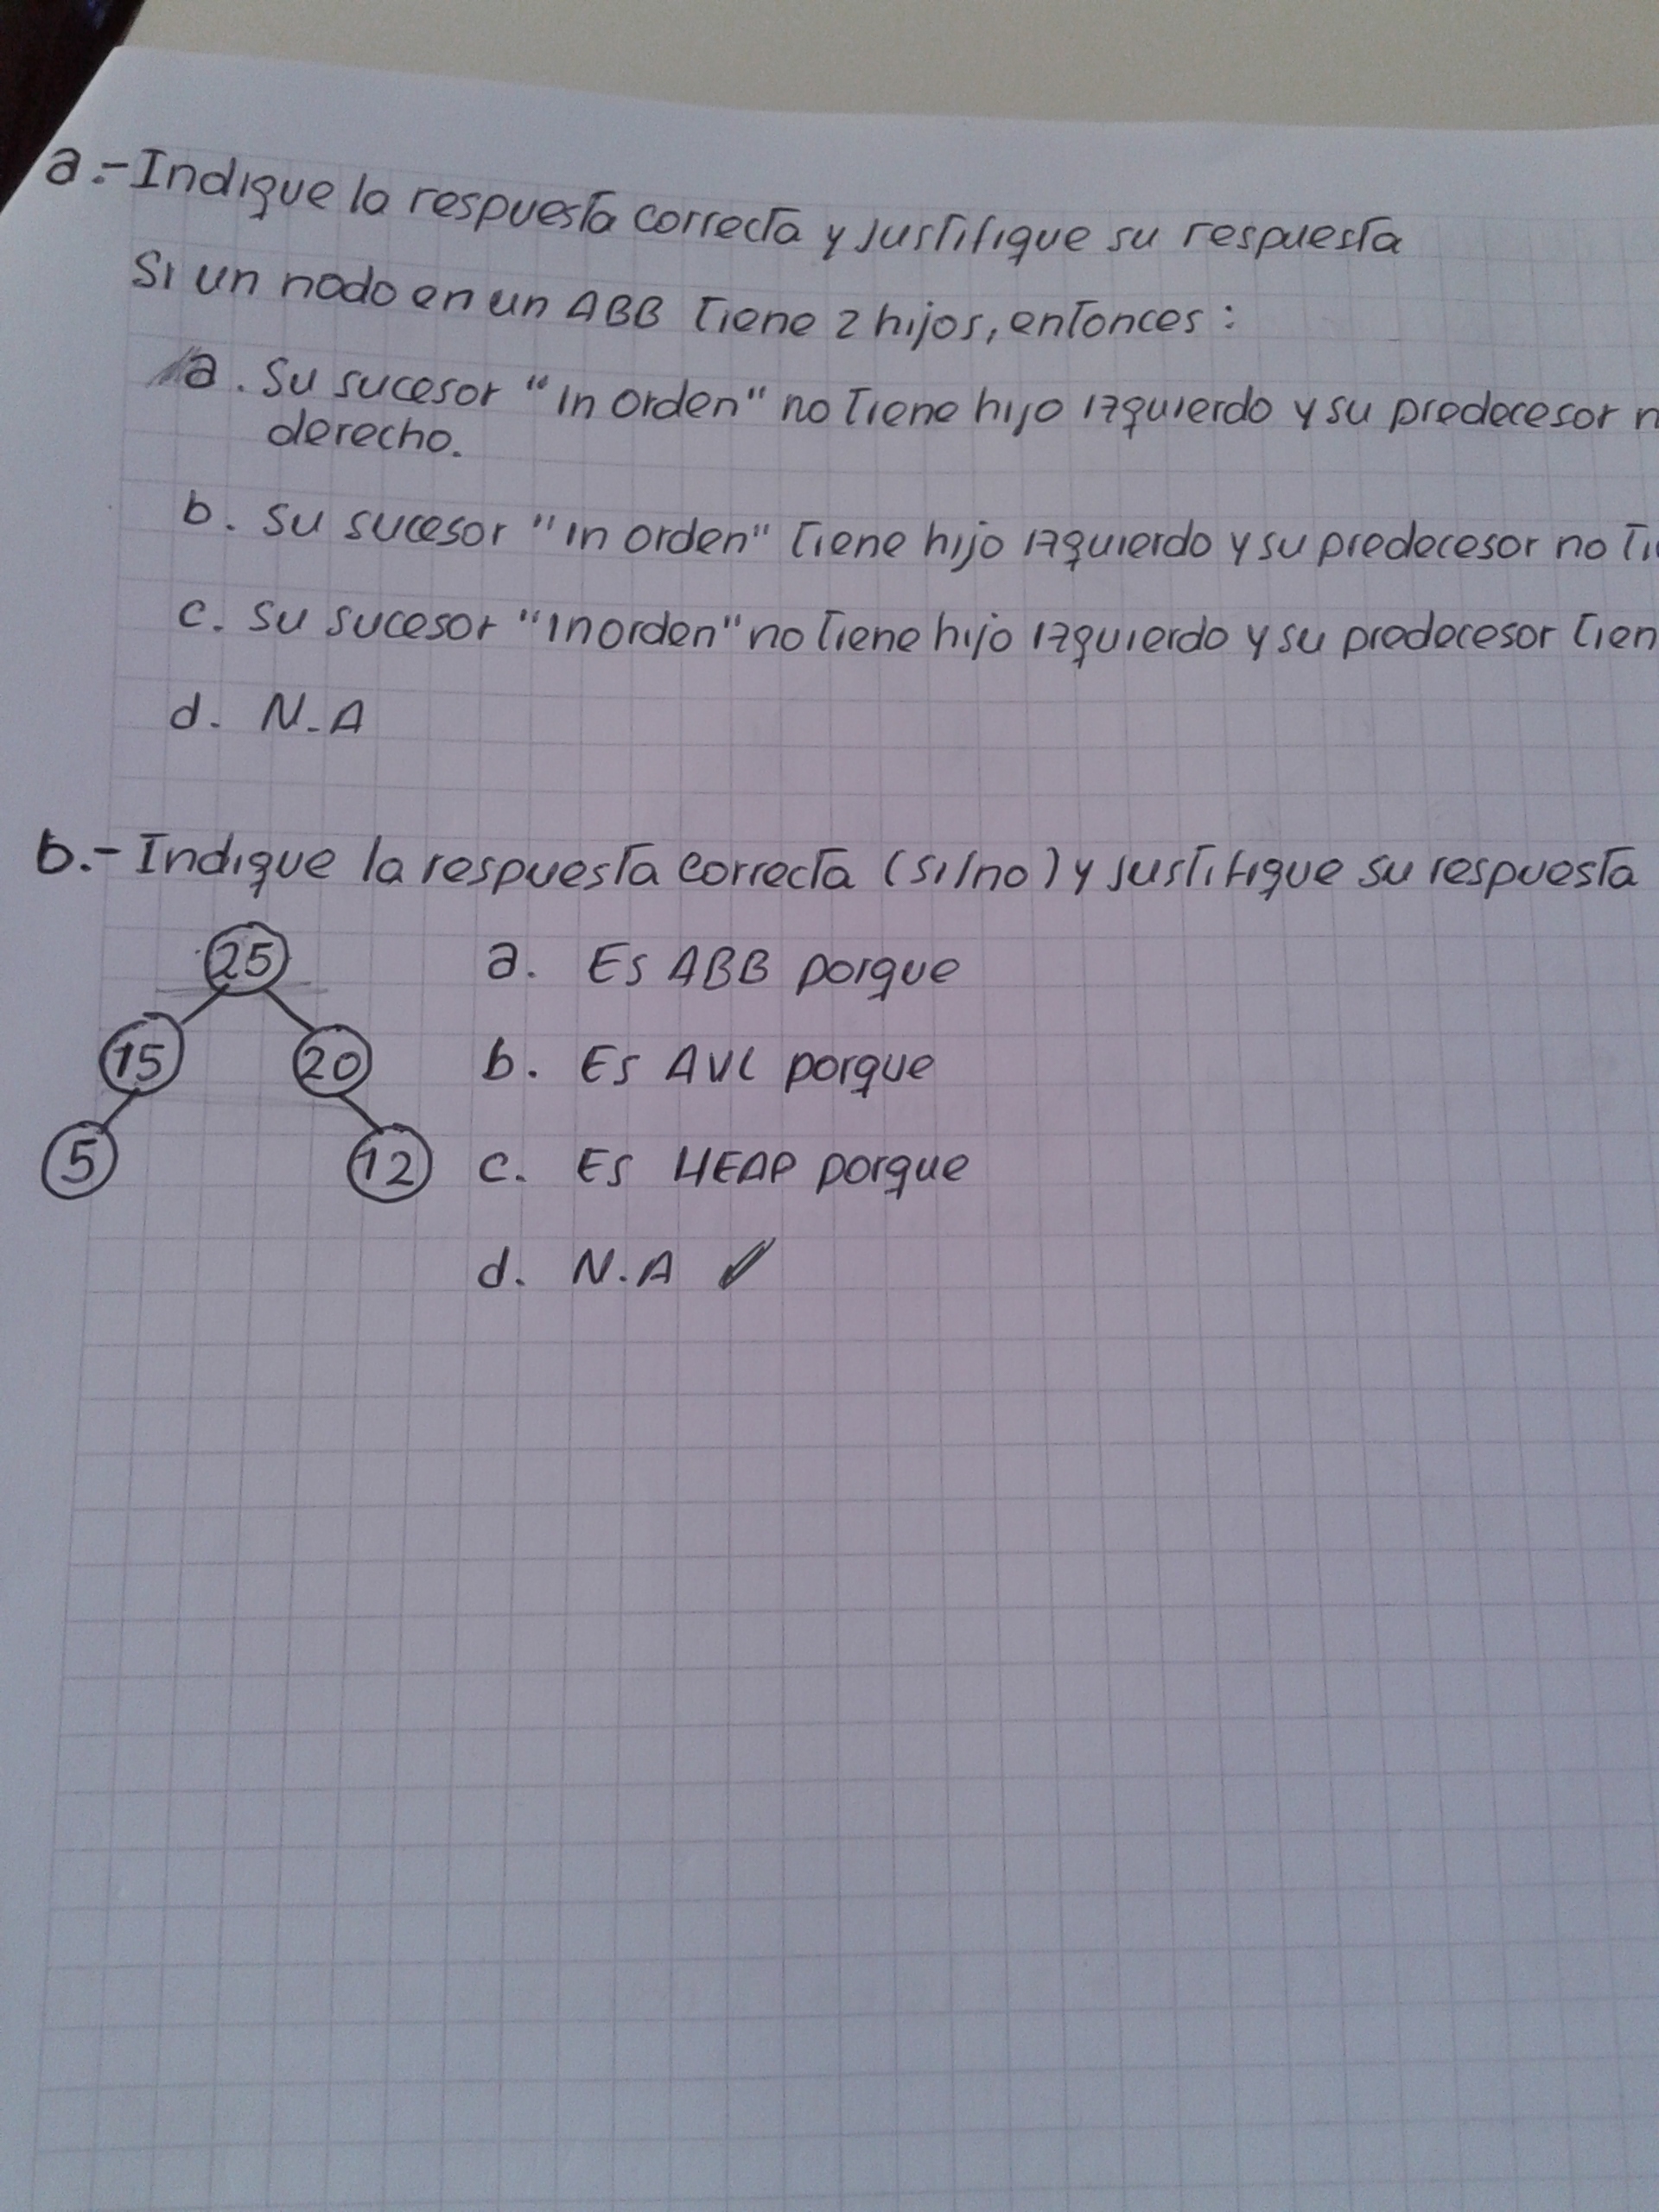 a.- Indique la respuesta correcta y justifique su respuesta
Si un nodo en un ABB tiene 2 hijos, entonces:
a. Su sucesor "in orden" no tiene hijo izquierdo y su predecesor n
derecho.
b. Su sucesor "in orden" tiene hijo izquierdo y su predecesor no ti
c. Su sucesor "inorden" no tiene hijo izquierdo y su predecesor tien
d. N.A
b.- Indique la respuesta correcta (si/no) y justifique su respuesta
25
a. Es ABB porque
15 20
b. Es AVL porque
5 12
c. Es HEAP porque
d. N.A ✓